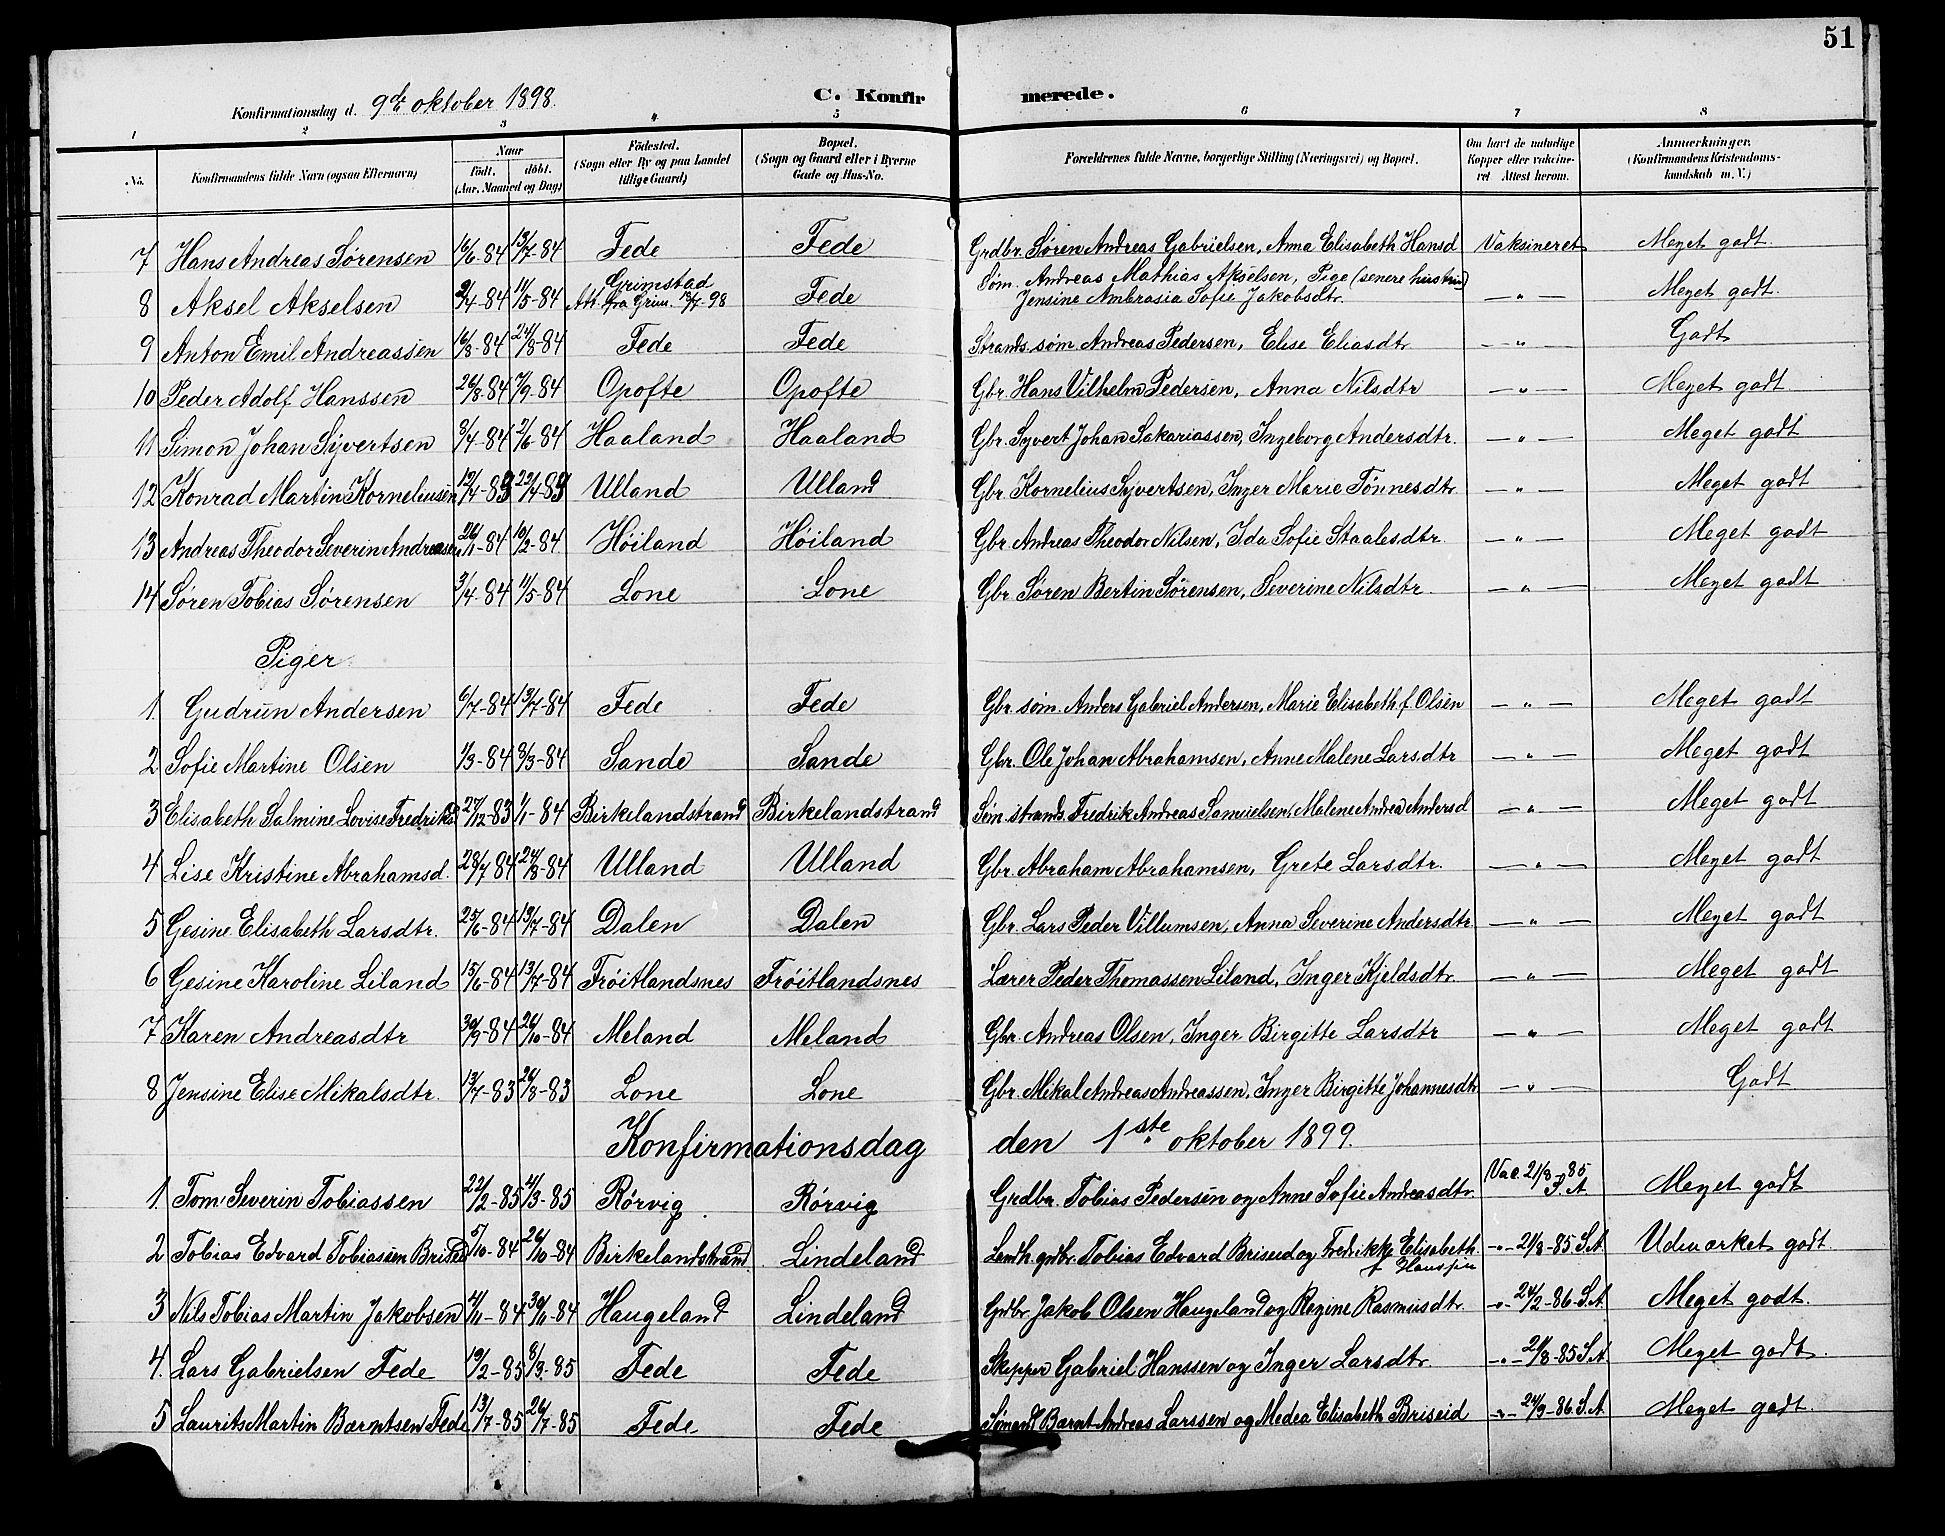 51
Konfirmationsdag d. 9de oktober 1898. C. Konfirmerede.
1 2 3 4 5 6 7 8
No. Konfirmandens fulde Navn (ogsaa Efternavn) Naar født. døbt. (Aar, Maaned og Dag) Fødested. (Sogn eller By og paa Landet tillige Gaard) Bopæl. (Sogn og Gaard eller i Byerne Gade og Hus-No. Forældrenes fulde Navne, borgerlige Stilling (Næringsvei) og Bopæl. Om havt de naturlige Kopper eller vaccineret Attest herom. Anmærkninger. (Konfirmandens Kristendomskundskab m. V.)
7 Hans Andreas Sørensen 16/6-84 13/7-84 Fede Fede Grdbr. Søren Andreas Gabrielsen, Anna Elisabeth Hansd Vaksineret Meget godt
8 Aksel Akselsen 9/4-84 11/5-84 Grimstad Att. fra Grim. 98 Fede Søm. Andreas Mathias Akselsen, Pige (senere hustru) Jensine Ambrosia Sofie Jakobsdtr. — " — Meget godt.
9 Anton Emil Andreassen 16/8-84 24/8-84 Fede Fede Strands. søm. Andreas Pedersen, Elise Eliasdtr — " — Godt
10 Peder Adolf Hanssen 26/8-84 7/9-84 Opofte Opofte Gbr. Hans Vilhelm Pedersen, Anna Nilsdtr — " — Meget godt
11 Simon Johan Syvertsen 3/4-84 2/6-84 Haaland Haaland Gbr. Syvert Johan Sakariassen, Ingeborg Andersdtr. — " — Meget godt
12 Konrad Martin Korneliusen Ulland Ulland Gbr. Kornelius Syvertsen, Inger Marie Tønnesdtr — " — Meget godt
13 Andreas Theodor Severin Andreasen 26/1-84 10/2-84 Høiland Høiland Gbr. Andreas Theodor Nilsen, Ida Sofie Staalesdtr. — " — Meget godt
14 Søren Tobias Sørensen 3/4-84 11/5-84 Lone Lone Gbr. Søren Bertin Sørensen, Severine Nilsdtr. — " — Meget godt
Piger
1. Gudrun Andersen 6/7-84 13/7-84 Fede Fede Gbr. søm. Anders Gabriel Andersen, Marie Elisabeth f. Olsen — " — Meget godt
2 Sofie Martine Olsen 1/3-84 8/3-84 Sande Sande Gbr. Ole Johan Abrahamsen, Anne Malene Larsdtr — " — Meget godt
3 Elisabeth Salmine Lovise Fredriksd 27/12-83 1/1-84 Birkelandstrand Birkelandstrand Søm. strands. Fredrik Andreas Samuelsen, Malene Andrea Andersd — " — Meget godt
4 Lise Kristine Abrahamsd. 28/7 84 24/8-84 Ulland Ulland Gbr. Abraham Abrahamsen, Grete Larsdtr. — " — Meget godt
5 Gesine Elisabeth Larsdtr. 25/6-84 13/7-84 Dalen Dalen Gbr. Lars Peder Villumsen, Anna Severine Andersdtr. — " — Meget godt
6 Gesine Karoline Liland 15/6-84 13/7-84 Frøitlandsnes Frøitlandsnes Lærer Peder Thomassen Liland, Inger Kjeldsdtr. — " — Meget godt
7 Karen Andreasdtr 30/9-84 26/10-84 Meland Meland Gbr. Andreas Olsen, Inger Birgitte Larsdtr — " — Meget godt
8 Jensine Elise Mikalsdtr. 13/7-83 26/8-83 Lone Lone Gbr. Mikal Andreas Andreassen, Inger Birgitte Johannesdtr — " — Godt
Konfirmationsdag den 1ste oktober 1899.
1. Tom Severin Tobiassen 22/2-85 4/3-85 Rørvig Rørvig Grdbr. Tobias Pedersen og Anne Sofie Andreasdtr. Vac. 21/8-85 S.A Meget godt
2 Tobias Edvard Tobiassen Briseid 5/10-84 26/10-84 Birkelandstrand Lindeland Landh. grdbr. Tobias Edvard Briseid og Fredrikke Elisabeth f Hanssen -"- 21/8-85 S.A Udmærket godt
3 Nils Tobias Martin Jakobsen 4/11-84 30/11-84 Haugeland Lindeland Grdbr Jakob Olsen Haugeland og Regine Rasmusdtr. -"- 24/2-86 S.A Meget godt.
4. Lars Gabrielsen Fede 19/2-85 8/3-85 Fede Fede Skipper Gabriel Hanssen og Inger Larsdtr. -"- 21/8-85 S.A Meget godt.
5 Laurits Martin Bærntsen Fede 13/7-85 26/7-85 Fede Fede Sømand Bærnt Andreas Larssen og Medea Elisabeth Briseid -"- 24/9-86. S.A Meget godt.